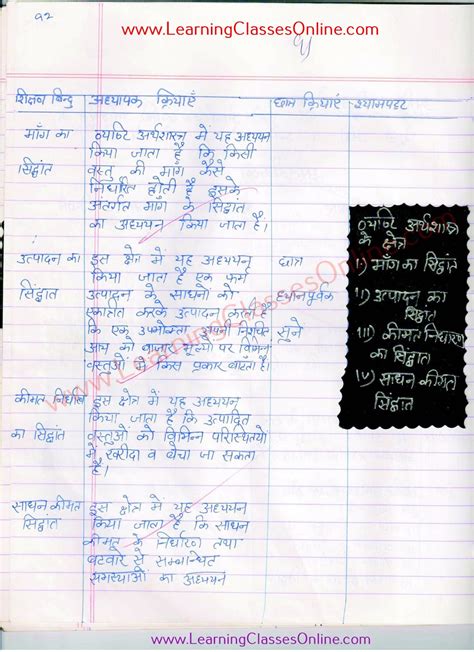 www.LearningClassesOnline.com
शिक्षण बिन्दु अध्यापक क्रियाएँ छात्र क्रियाएं श्यामपट्ट
माँग का सिद्धांत
व्यष्टि अर्थशास्त्र में यह अध्ययन
किया जाता है कि किसी
वस्तु की माँग कैसे
निर्धारित होती है इसके
अंतर्गत माँग के सिद्धांत
का अध्ययन किया जाता है।
उत्पादन का
सिद्धांत
इस क्षेत्र में यह अध्ययन
किया जाता है एक फर्म
उत्पादन के साधनों को
एकत्रित करके उत्पादन करती है
कि एक उपभोक्ता अपनी निश्चित
आय को बाजार मूल्यों पर विभिन्न
वस्तुओं में किस प्रकार बाँटता है।
छात्र
ध्यानपूर्वक
सुने
कीमत निर्धारण
का सिद्धांत
इस क्षेत्र में यह अध्ययन
किया जाता है कि उत्पादित
वस्तुओं को विभिन्न परिस्थितियों
में खरीदा व बेचा जा सकता
है।
साधन कीमत
सिद्धांत
इस क्षेत्र में यह अध्ययन
किया जाता है कि साधन
कीमत के निर्धारण तथा
बटवारे से सम्बन्धित
समस्याओं का अध्ययन
व्यष्टि अर्थशास्त्र
के क्षेत्र
I) माँग का सिद्धांत
II) उत्पादन का
सिद्धांत
III) कीमत निर्धारण
का सिद्धांत
IV) साधन कीमत
सिद्धांत
www.LearningClassesOnline.com
www.LearningClassesOnline.com